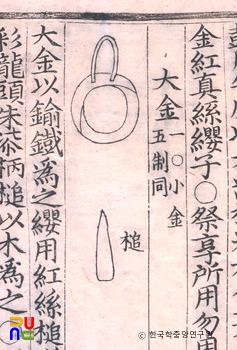 金紅真絲纓子○祭享所用勿用
大金
一○小金
五制同
槌
大金以鍮鐵爲之纓用紅絲槌
彩龍頭朱漆柄槌以木爲之
ⓒ 한국학중앙연구원